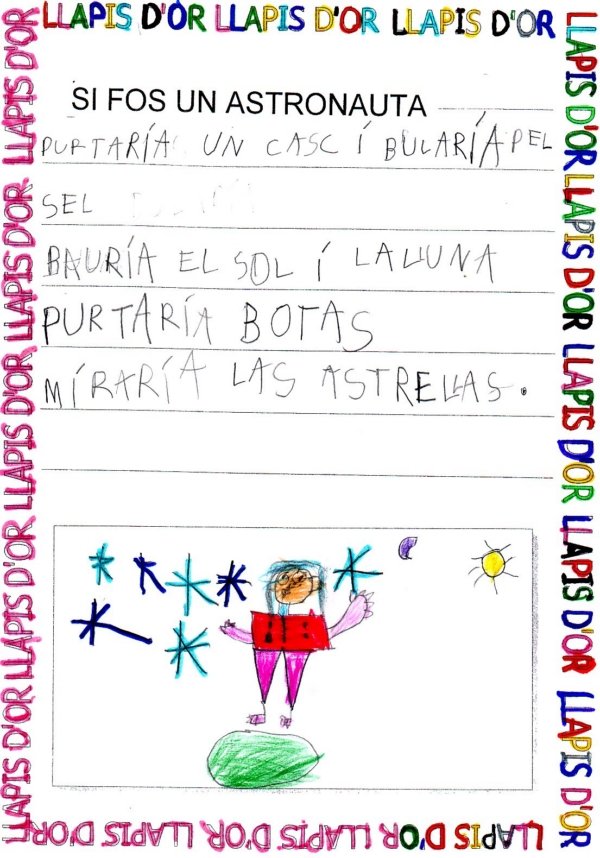 LLAPIS D'OR LLAPIS D'OR LLAPIS D'OR
SI FOS UN ASTRONAUTA
PURTARÍA UN CASC I BULARÍA PEL
SEL
BAURÍA EL SOL I LA LLUNA
PURTARÍA BOTAS
MIRARÍA LAS ASTRELLAS.
LLAPIS D'OR LLAPIS D'OR LLAPIS D'OR LLAPIS D'OR LLAPIS D'OR
LLAPIS D'OR LLAPIS D'OR LLAPIS D'OR LLAPIS D'OR LLAPIS D'OR
LLAPIS D'OR LLAPIS D'OR LLAPIS D'OR LLAPIS D'OR